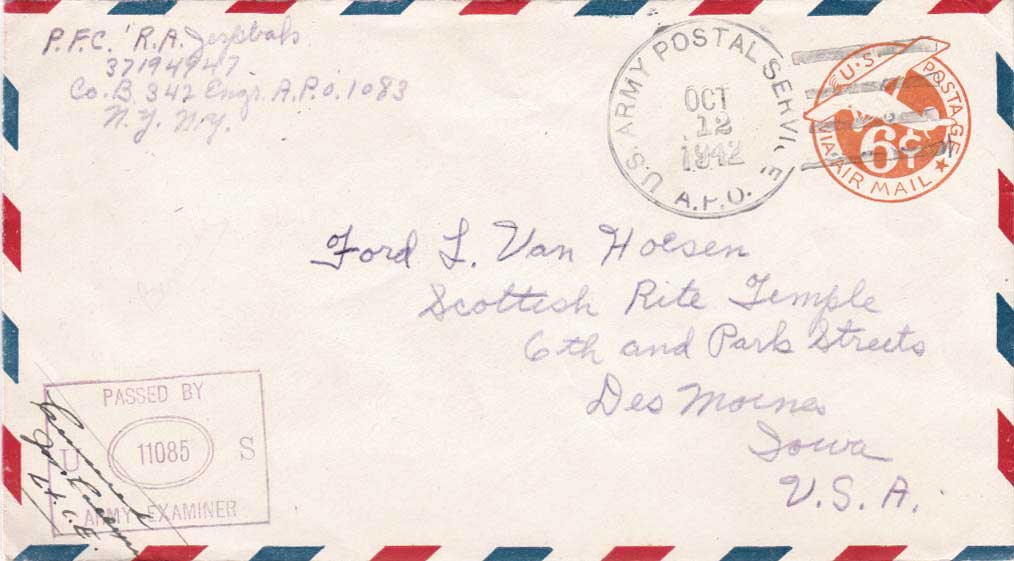 P.F.C. R.A.
37194947
Co. B. 342 Engr. A.P.O. 1083
N.Y. N.Y.
U.S. ARMY POSTAL SERVICE
OCT
12
1942
A.P.O.
U·S· POSTAGE
6¢
VIA AIR MAIL
Ford L. Van Hoesen
Scottish Rite Temple
6th and Park Streets
Des Moines
Iowa
U.S.A.
PASSED BY
U 11085 S
ARMY EXAMINER